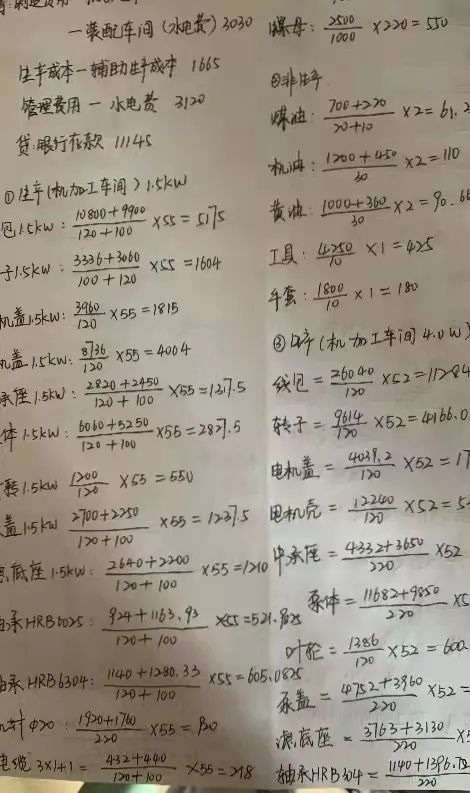 一装配车间(水电费) 3030
生产成本一辅助生产成本 1665
管理费用一水电费 3120
贷:银行存款 11145
①生产(机加工车间) 1.5kW
包1.5kW: 10800+9900/120+100 ×55=5175
子1.5kW: 3336+3060/100+120 ×55=1604
机盖1.5kW: 3960/120 ×55=1815
机盖1.5kW: 8736/120 ×55=4004
承座1.5kW: 2820+2450/120+100 ×55=1317.5
体1.5kW: 6060+5250/120+100 ×55=2827.5
转1.5kW 1200/120 ×55=550
盖1.5kW 2700+2250/120+100 ×55=1237.5
底座1.5kW: 2640+2200/120+100 ×55=1210
承HRB6025: 924+1163.93/120+100 ×55=521.9825
轴承HRB6304: 1140+1280.33/120+100 ×55=605.0825
针Φ20: 1920+1760/220 ×55=920
电缆3×1+1= 432+440/120+100 ×55=218
螺母: 2500/1000 ×220=550
②非生产
煤油: 700+220/20+10 ×2=61.3
机油: 1200+450/30 ×2=110
黄油: 1000+360/30 ×2=90.66
工具: 4250/10 ×1=425
手套: 1800/10 ×1=180
③生产(机加工车间)4.0W)
线包= 26040/120 ×52=11284
转子= 9614/120 ×52=4166.0
电机盖= 4039.2/120 ×52=17
电机壳= 12240/120 ×52=5
中承座= 4332+3650/220 ×52
泵体= 11682+9850/220 ×5
叶轮= 1386/120 ×52=600.
泵盖= 4752+3960/220 ×52=
滤底座= 3763+3130/220 ×5
轴承HRB304= 1140+1396.72/220